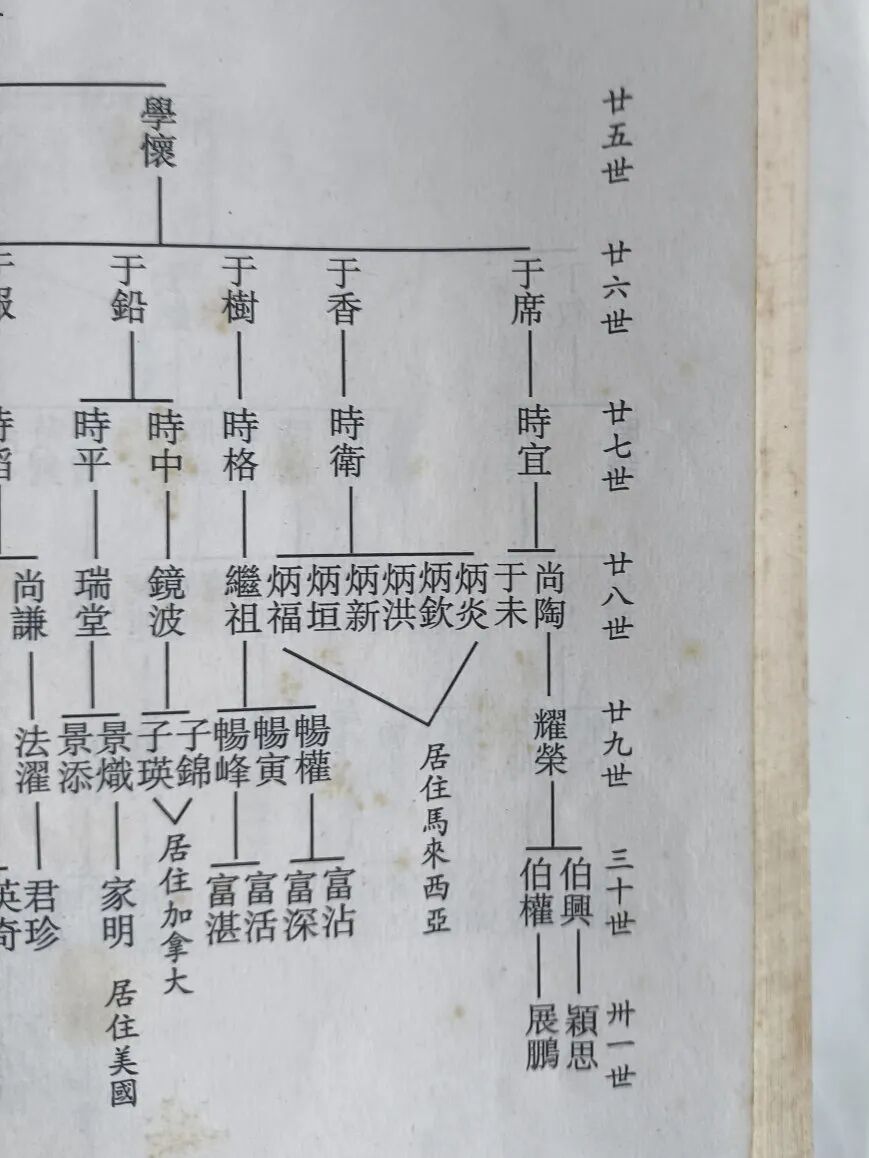 廿五世
學懷
廿六世
于席
于香
于樹
于鉛
廿七世
時宜
時衛
時格
時中
時平
廿八世
尚陶
于未
炳炎
炳欽
炳洪
炳新
炳垣
炳福
繼祖
鏡波
瑞堂
尚謙
廿九世
耀榮
居住馬來西亞
暢權
暢寅
暢峰
子錦
子瑛
居住加拿大
景熾
景添
法濯
三十世
伯興
伯權
富沾
富深
富活
富湛
家明
居住美國
君珍
英奇
卅一世
穎思
展鵬